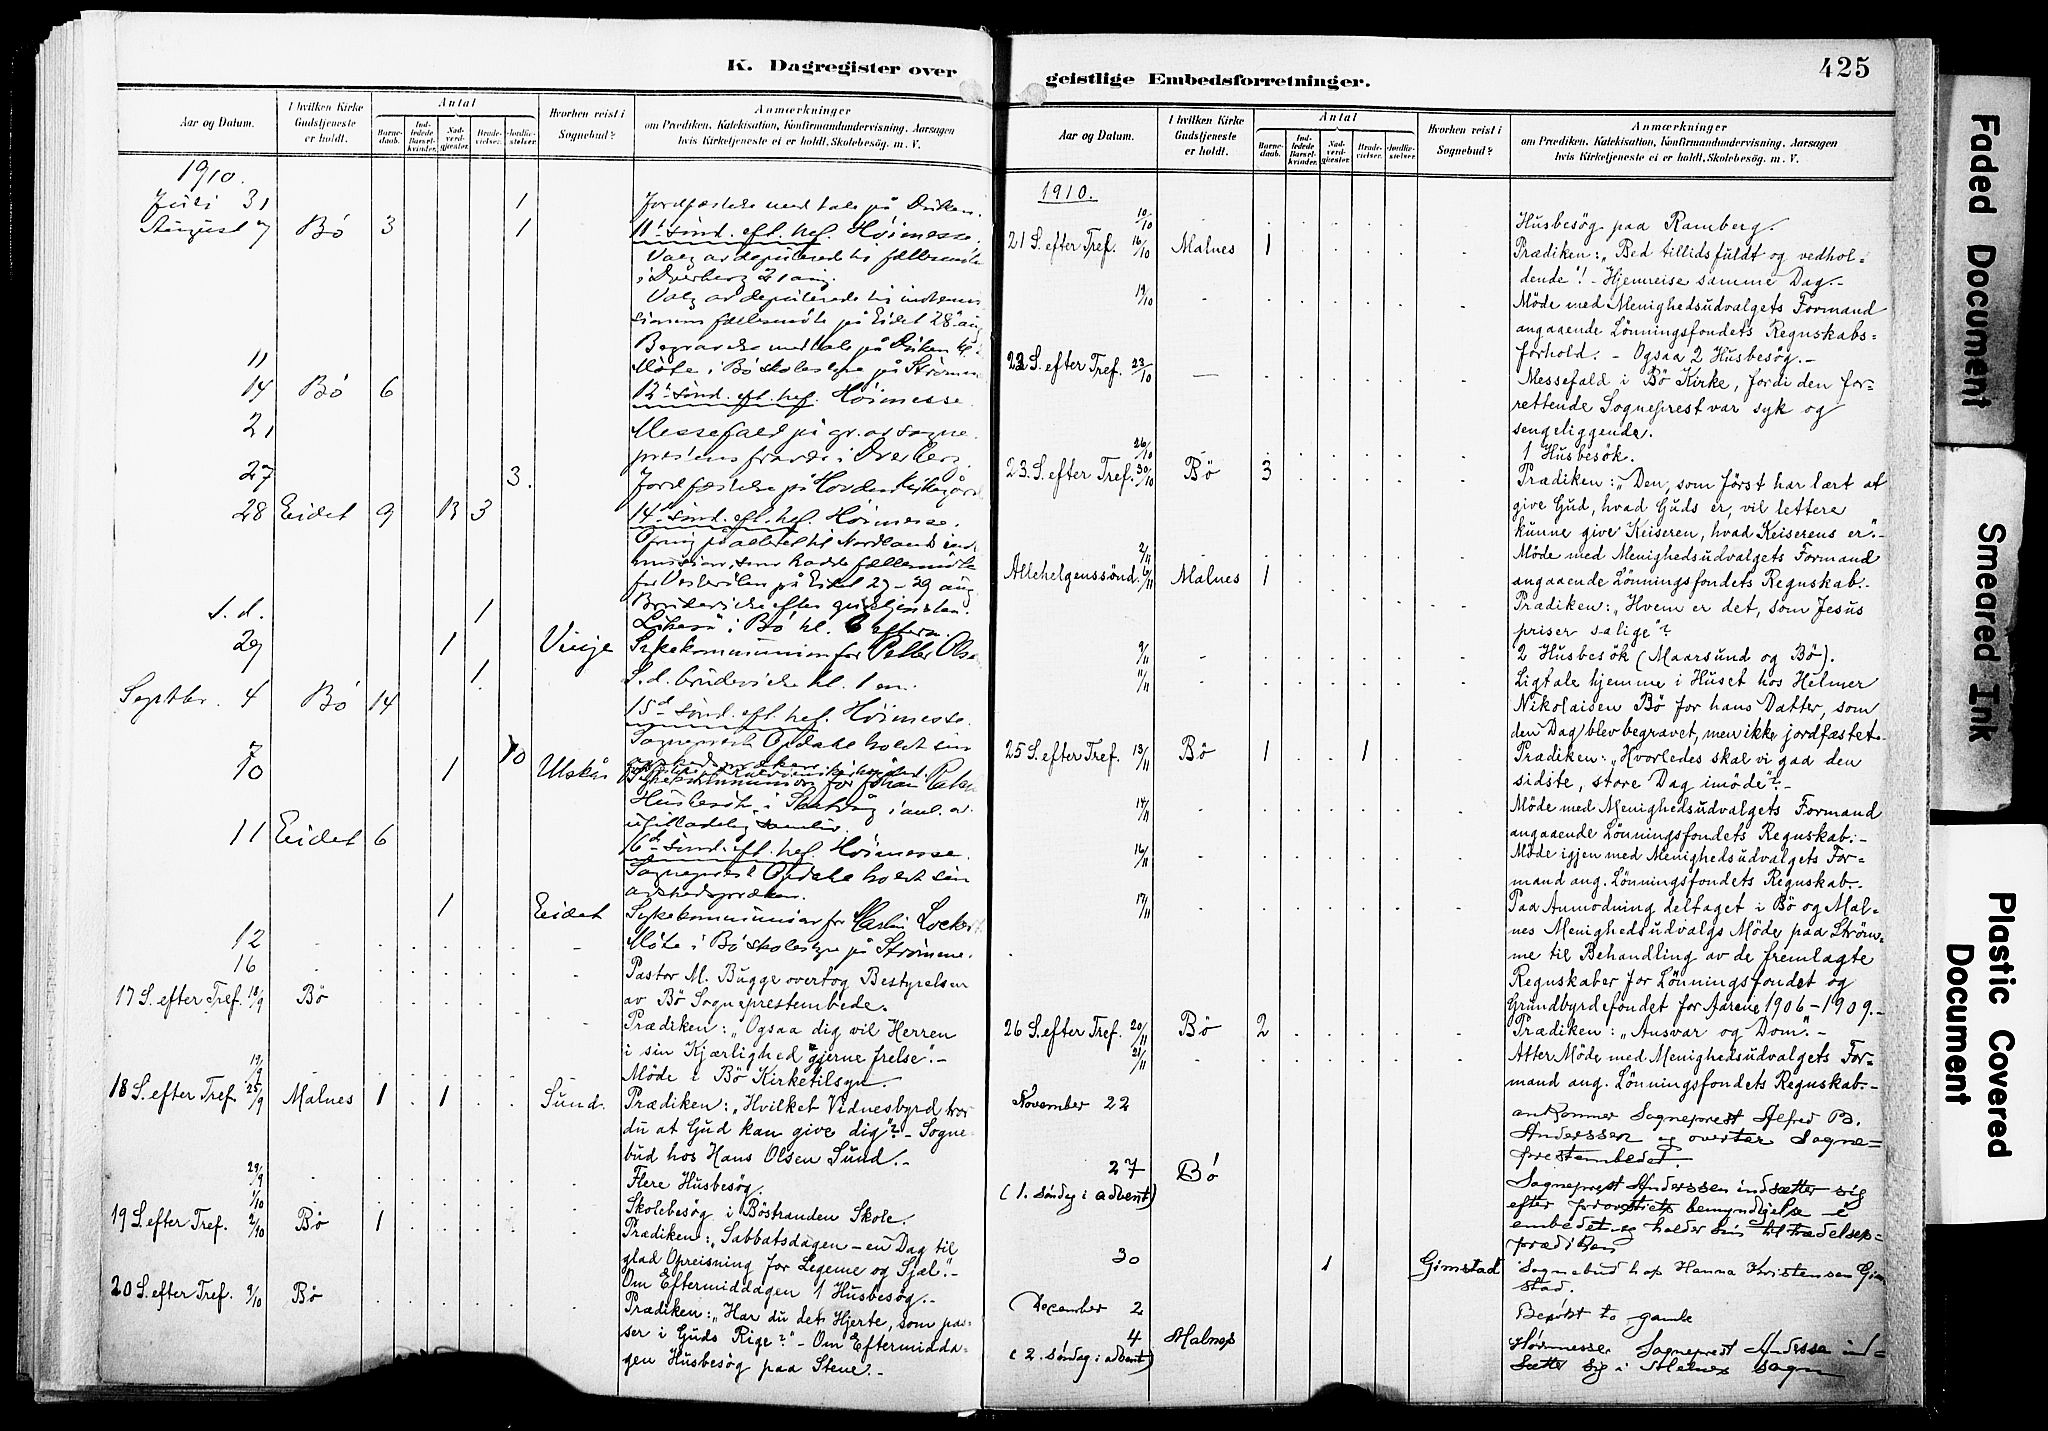 K. Dagregister over
Aar og Datum.
I hvilken Kirke Gudstjeneste er holdt.
Antal
Barnedaab.
Indledede Barselkvinder.
Nadverdgjæster.
Brudevielser.
Jordfæstelser.
Hvorhen reist i Sognebud?
Anmærkninger
om Prædiken, Katekisation, Konfirmandundervisning, Aarsagen
hvis Kirketjeneste ei er holdt, Skolebesøg. m. V.
1910.
Juli 31 1 Jordfæstelse med tale på
August 7 Bö 3 1 11te sönd. eft. tref. Høimesse.
Valg av deputerede til fællesmøte
i Dverberg 21 aug.
Valg av deputerede til indremis-
sionens fællesmøte på Eidet 28 aug
Begravelse med tale på
11 Møte i Bö skolestyre på Strømme
14 Bö 6 12te sönd. eft. tref. Høimesse.
21 Messefald på gr. av sogne-
prestens fravær i Dverberg.
27 3. Jordfæstelse på Hovden kirkegård
28 Eidet 9 13 3 14de sönd. eft. tref. Høimesse.
til Nordlands ind-
mission, som hadde fællesmøte
for Vesterålen på Eidet 27-29 aug.
S. d. 1 Brudevielse efter gudstjenesten.
i Bö kl. 6 efterm.
29 1 Vinje Sykekommunion for Peter Olsen
1 S. d. brudevielse kl. 1 em.
Septbr. 4 Bö 14 15de sönd. eft. tref. Høimesse.
Sogneprest Opdahl holdt sin
avskedspræken.
7 10
10 1 Sykekommunion for Johan
Husbesök i i anl. av
utilladelig samliv.
11 Eidet 6 16de sönd. eft. tref. Høimesse.
Sogneprest Opdahl holdt sin
avskedspræken.
1 Eidet Sykekommunion for
12 Møte i Bö skolestyre på Strømme.
16 Pastor M. Bugge overtog Bestyrelsen
av Bö Sogneprestembede.
17 S. efter Tref. 18/9 Bö Prædiken: „Ogsaa dig vil Herren
i sin Kjærlighed gjerne frelse".-
19/9 Möde i Bö Kirketilsyn.
18 S. efter Tref. 25/9 Malnes 1 1 Sund. Prædiken: „Hvilket Vidnesbyrd tror
du at Gud kan give dig"? - Sogne-
bud hos Hans Olsen Sund.-
29/9 Flere Husbesög.
1/10 Skolebesög i Böstranden Skole.
19 S. efter Tref. 2/10 Bö 1 Prædiken: „Sabbatsdagen - en Dag til
glad Opreisning for Legeme og Sjæl".-
Om Eftermiddagen 1 Husbesög.-
20 S. efter Tref. 9/10 Bö Prædiken: „Har du det Hjerte, som pas-
ser i Guds Rige?" - Om Eftermidda-
gen Husbesög paa Steine.-
geistlige Embedsforretninger.
425
Aar og Datum.
I hvilken Kirke Gudstjeneste er holdt.
Antal
Barnedaab.
Indledede Barselkvinder.
Nadverdgjæster.
Brudevielser.
Jordfæstelser.
Hvorhen reist i Sognebud?
Anmærkninger
om Prædiken, Katekisation, Konfirmandundervisning, Aarsagen
hvis Kirketjeneste ei er holdt, Skolebesøg. m. V.
1910.
10/10 Husbesög paa Ramberg.
21 S. efter Tref. 16/10 Malnes 1 Prædiken: „Bed tillidsfuldt og vedhol-
dende"! - Hjemreise samme Dag.-
19/10 Möde med Menighedsudvalgets Formand
angaaende Lönningsfondets Regnskabs-
forhold. - Ogsaa 2 Husbesög.-
22 S. efter Tref. 23/10 Messefald i Bö Kirke, fordi den for-
rettende Sogneprest var syk og
sengeliggende.
26/10 1 Husbesök.
23. S. efter Tref. 30/10 Bö 3 Prædiken: „Den, som först har lært at
give Gud, hvad Guds er, vil lettere
kunne give Keiseren, hvad Keiserens er".-
2/11 Möde med Menighedsudvalgets Formand
angaaende Lönningsfondets Regnskab.-
Allehelgenssönd. 6/11 Malnes 1 Prædiken: „Hvem er det, som Jesus
priser salige"?
9/11 2 Husbesök (Maarsund og Bö).
11/11 Ligtale hjemme i Huset hos Helmer
Nikolaisen Bö for hans Datter, som
den Dag blev begravet, men ikke jordfæstet.-
25 S. efter Tref. 13/11 Bö 1 1 Prædiken: „Hvorledes skal vi gaa den
sidste, store Dag imöde"?-
14/11 Möde med Menighedsudvalgets Formand
angaaende Lönningsfondets Regnskab.-
16/11 Möde igjen med Menighedsudvalgets For-
mand ang. Lönningsfondets Regnskab.-
17/11 Paa Anmodning deltaget i Bö og Mal-
nes Menighedsudvalgs Möde paa Ström-
me til Behandling av de fremlagte
Regnskaber for Lönningsfondet og
Grundbyrdefondet for Aarene 1906-1909.-
26 S. efter Tref. 20/11 Bö 2 Prædiken: „Ansvar og Dom".-
21/11 Atter Möde med Menighedsudvalgets For-
mand ang. Lönningsfondets Regnskab.-
November 22 ankommer Sogneprest Alfred B.
Anderssen og overtar Sogne-
prestembedet.
27 Bö Sogneprest Anderssen indsætter sig
(1. søndag i advent) efter provstiets bemyndigelse i
embedet og holder sin tiltrædelses-
prædiken
30 1 Gimstad Sognebud hos Hanna Kristensen Gim
stad.
December 2 Besökt to gamle
4 Malnes Høimesse. Sogneprest Anderssen ind-
(2. søndag i advent) sætter sig i Malnes sogn
Faded Document
Smeared Ink
Plastic Covered Document